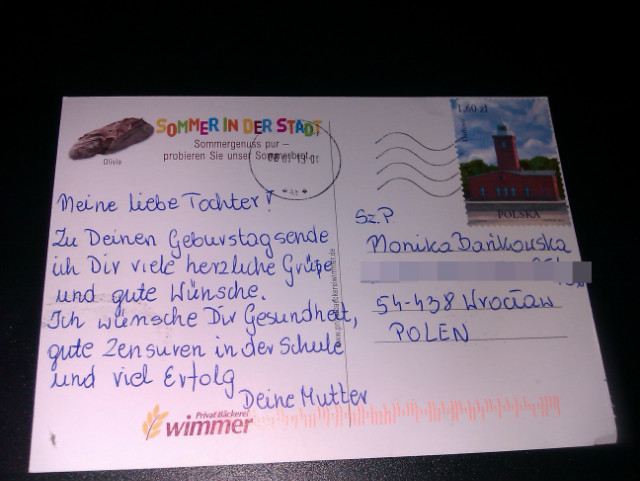 SOMMER IN DER STADT
Sommergenuss pur –
probieren Sie unser Sommerbrot.
Olivia
1,60 zł
POLSKA
Meine liebe Tochter!
Zu Deinen Geburstagsende
ich Dir viele herzliche Grüße
und gute Wünsche.
Ich wünsche Dir Gesundheit,
gute Zensuren in der Schule
und viel Erfolg
Deine Mutter
Sz.P
Monika Bańkowska
54-438 Wrocław
POLEN
Privat Bäckerei
wimmer